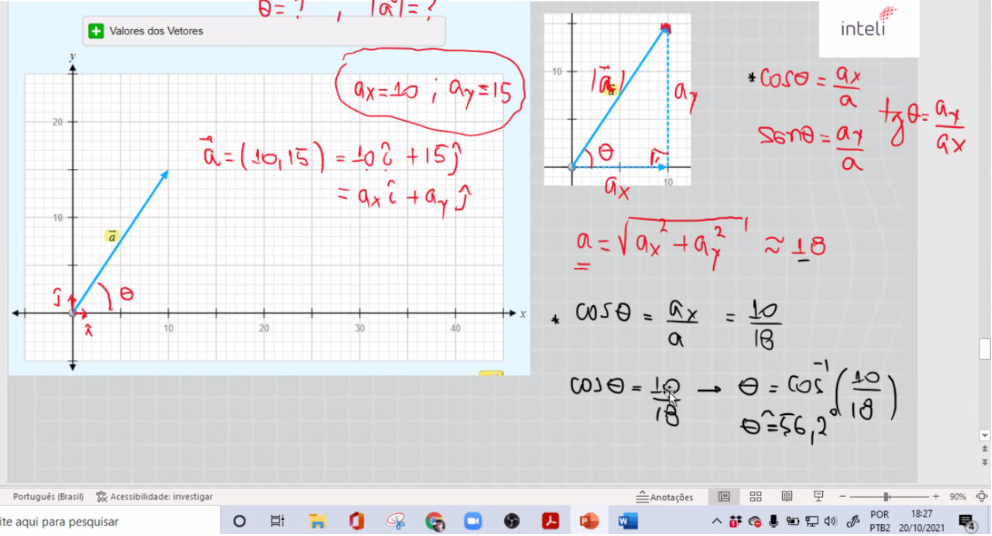 θ = ? , |a| = ?
Valores dos Vetores
inteli
y
20
10
10
20
30
40
x
ax = 10 ; ay = 15
a⃗ = (10,15) = 10î + 15ĵ
= axî + ayĵ
a⃗
θ
ĵ
î
10
10
|a⃗|
ay
θ
ax
*cosθ = ax/a
senθ = ay/a
tgθ = ay/ax
a = √(ax² + ay²) ≈ 18
* cosθ = ax/a = 10/18
cosθ = 10/18 → θ = cos⁻¹(10/18)
θ ≅ 56,2°
Português (Brasil)
Acessibilidade: investigar
Anotações
90%
ite aqui para pesquisar
POR
PTB2
18:27
20/10/2021
4